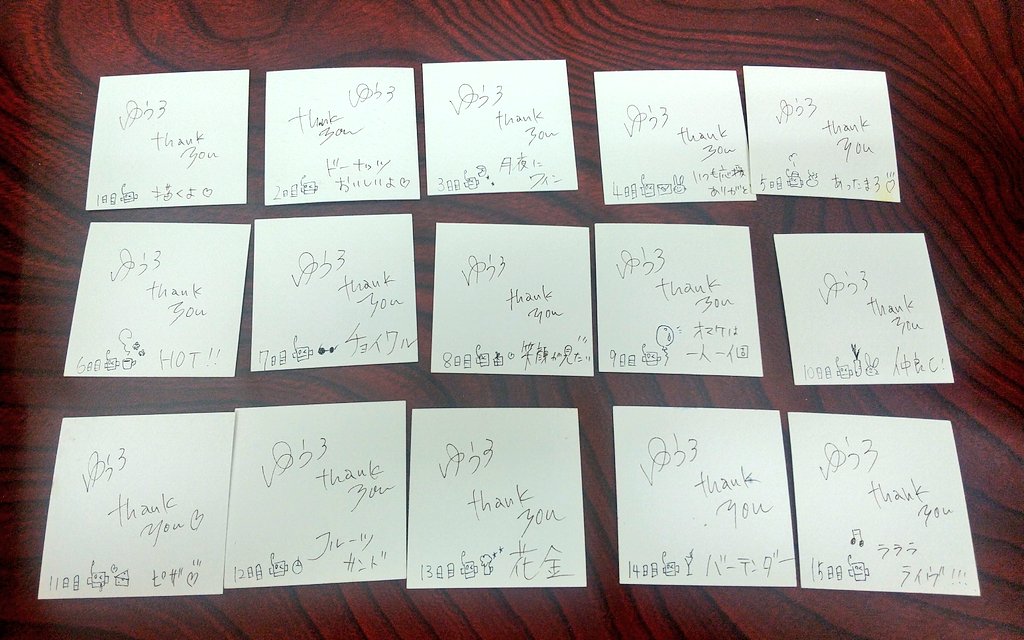 ゆうろ
thank
you
1日目 描くよ♡
ゆうろ
thank
you
ドーナッツ
2日目 おいしいよ♡
ゆうろ
thank
you
月夜に
3日目 ワイン
ゆうろ
thank
you
いつも応援
4日目 ありがと
ゆうろ
thank
you
5日目 あったまろ
ゆうろ
thank
you
6日目 HOT!!
ゆうろ
thank
you
7日目 チョイワル
ゆうろ
thank
you
8日目 笑顔が見たい
ゆうろ
thank
you
オマケは
9日目 一人一個
ゆうろ
thank
you
10日目 仲良し!
ゆうろ
thank
you♡
11日目 ピザ♡
ゆうろ
thank
you
フルーツ
12日目 サンド
ゆうろ
thank
you
13日目 花金
ゆうろ
thank
you
14日目 バーテンダー
ゆうろ
thank
you
ラララ
15日目 ライヴ!!!